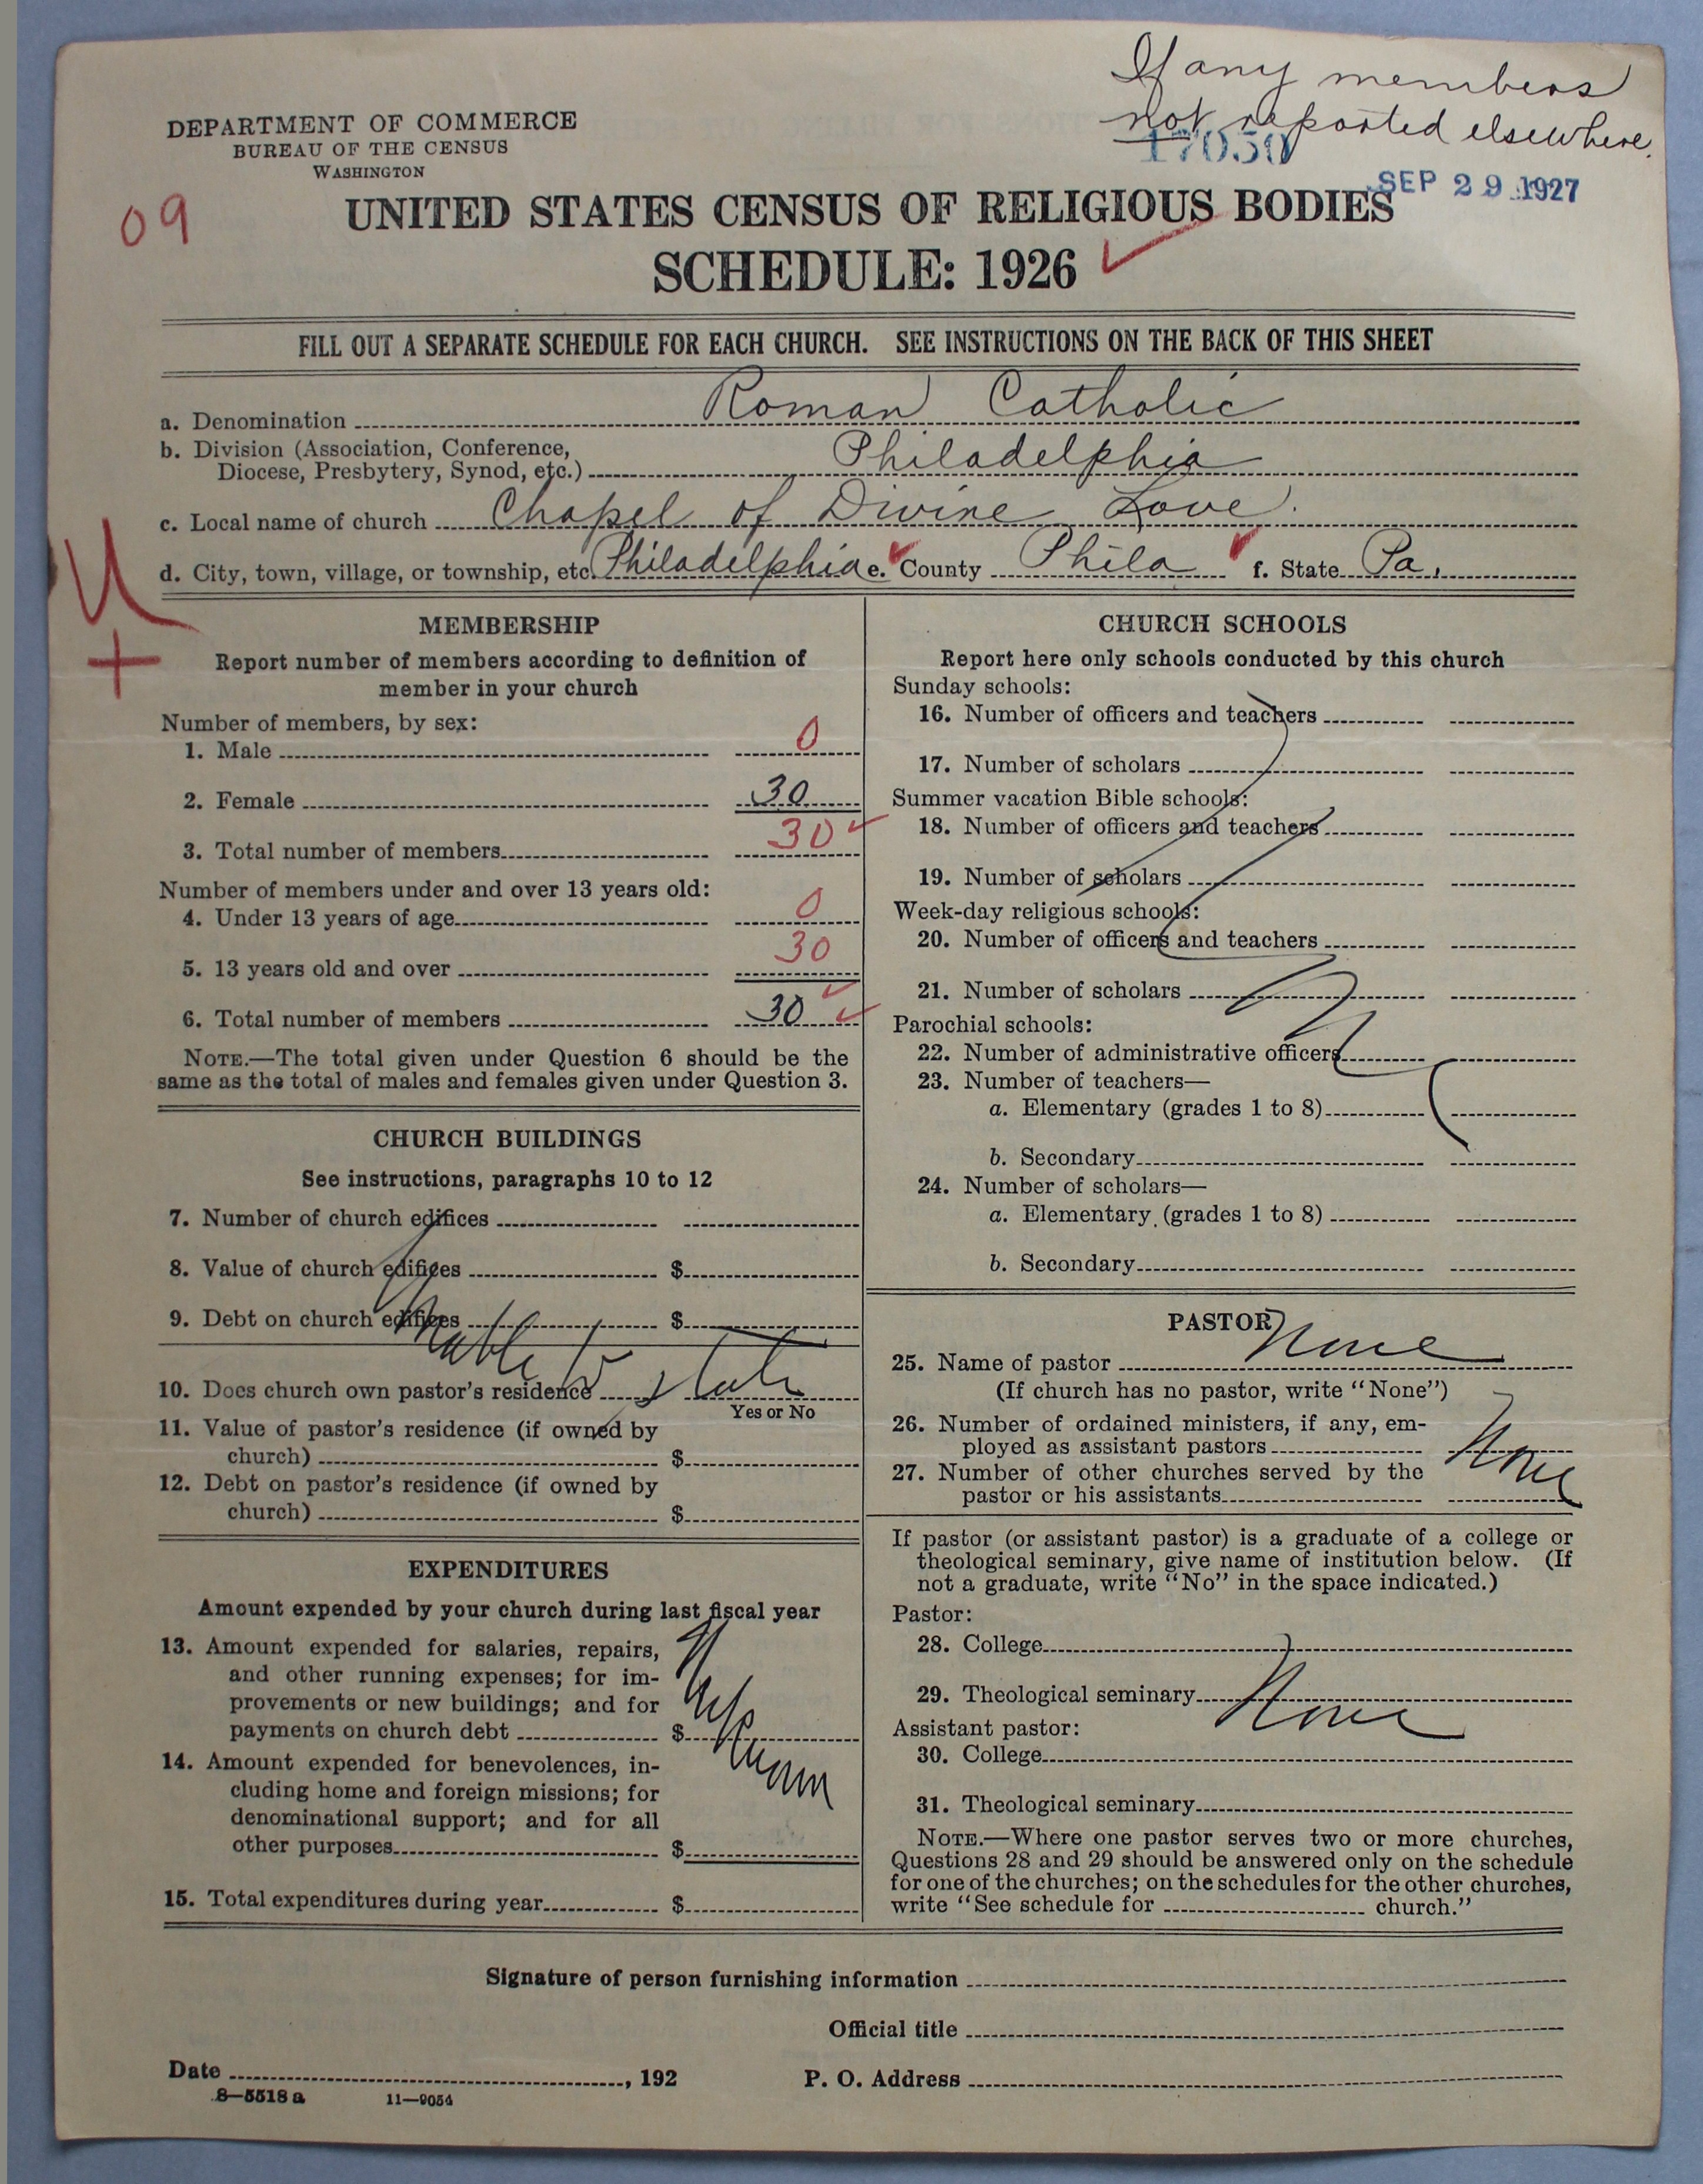 If any members
not reported elsewhere.
17050
SEP 29 1927
DEPARTMENT OF COMMERCE
BUREAU OF THE CENSUS
WASHINGTON
09
UNITED STATES CENSUS OF RELIGIOUS BODIES
SCHEDULE: 1926
FILL OUT A SEPARATE SCHEDULE FOR EACH CHURCH. SEE INSTRUCTIONS ON THE BACK OF THIS SHEET
a. Denomination Roman Catholic
b. Division (Association, Conference,
Diocese, Presbytery, Synod, etc.) Philadelphia
c. Local name of church Chapel of Divine Love.
d. City, town, village, or township, etc. Philadelphia e. County Phila f. State Pa.
U
+
MEMBERSHIP
Report number of members according to definition of
member in your church
Number of members, by sex:
1. Male 0
2. Female 30
3. Total number of members 30
Number of members under and over 13 years old:
4. Under 13 years of age 0
5. 13 years old and over 30
6. Total number of members 30
NOTE.—The total given under Question 6 should be the
same as the total of males and females given under Question 3.
CHURCH BUILDINGS
See instructions, paragraphs 10 to 12
7. Number of church edifices
8. Value of church edifices $
9. Debt on church edifices $
Unable to state
10. Does church own pastor's residence
Yes or No
11. Value of pastor's residence (if owned by
church) $
12. Debt on pastor's residence (if owned by
church) $
EXPENDITURES
Amount expended by your church during last fiscal year
13. Amount expended for salaries, repairs,
and other running expenses; for im-
provements or new buildings; and for
payments on church debt $
14. Amount expended for benevolences, in-
cluding home and foreign missions; for
denominational support; and for all
other purposes $
15. Total expenditures during year $
CHURCH SCHOOLS
Report here only schools conducted by this church
Sunday schools:
16. Number of officers and teachers
17. Number of scholars
Summer vacation Bible schools:
18. Number of officers and teachers
19. Number of scholars
Week-day religious schools:
20. Number of officers and teachers
21. Number of scholars
Parochial schools:
22. Number of administrative officers
23. Number of teachers—
a. Elementary (grades 1 to 8)
b. Secondary
24. Number of scholars—
a. Elementary (grades 1 to 8)
b. Secondary
PASTOR
25. Name of pastor None
(If church has no pastor, write "None")
26. Number of ordained ministers, if any, em-
ployed as assistant pastors None
27. Number of other churches served by the
pastor or his assistants
If pastor (or assistant pastor) is a graduate of a college or
theological seminary, give name of institution below. (If
not a graduate, write "No" in the space indicated.)
Pastor:
28. College
29. Theological seminary None
Assistant pastor:
30. College
31. Theological seminary
NOTE.—Where one pastor serves two or more churches,
Questions 28 and 29 should be answered only on the schedule
for one of the churches; on the schedules for the other churches,
write "See schedule for church."
Signature of person furnishing information
Official title
Date , 192
P. O. Address
8—5518 a 11—9054